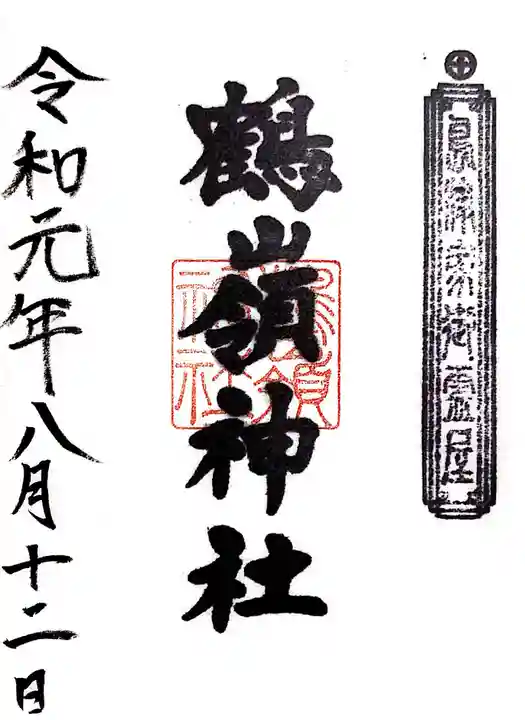 島津家御霊屋
鶴嶺神社
鶴嶺神社
令和元年八月十二日